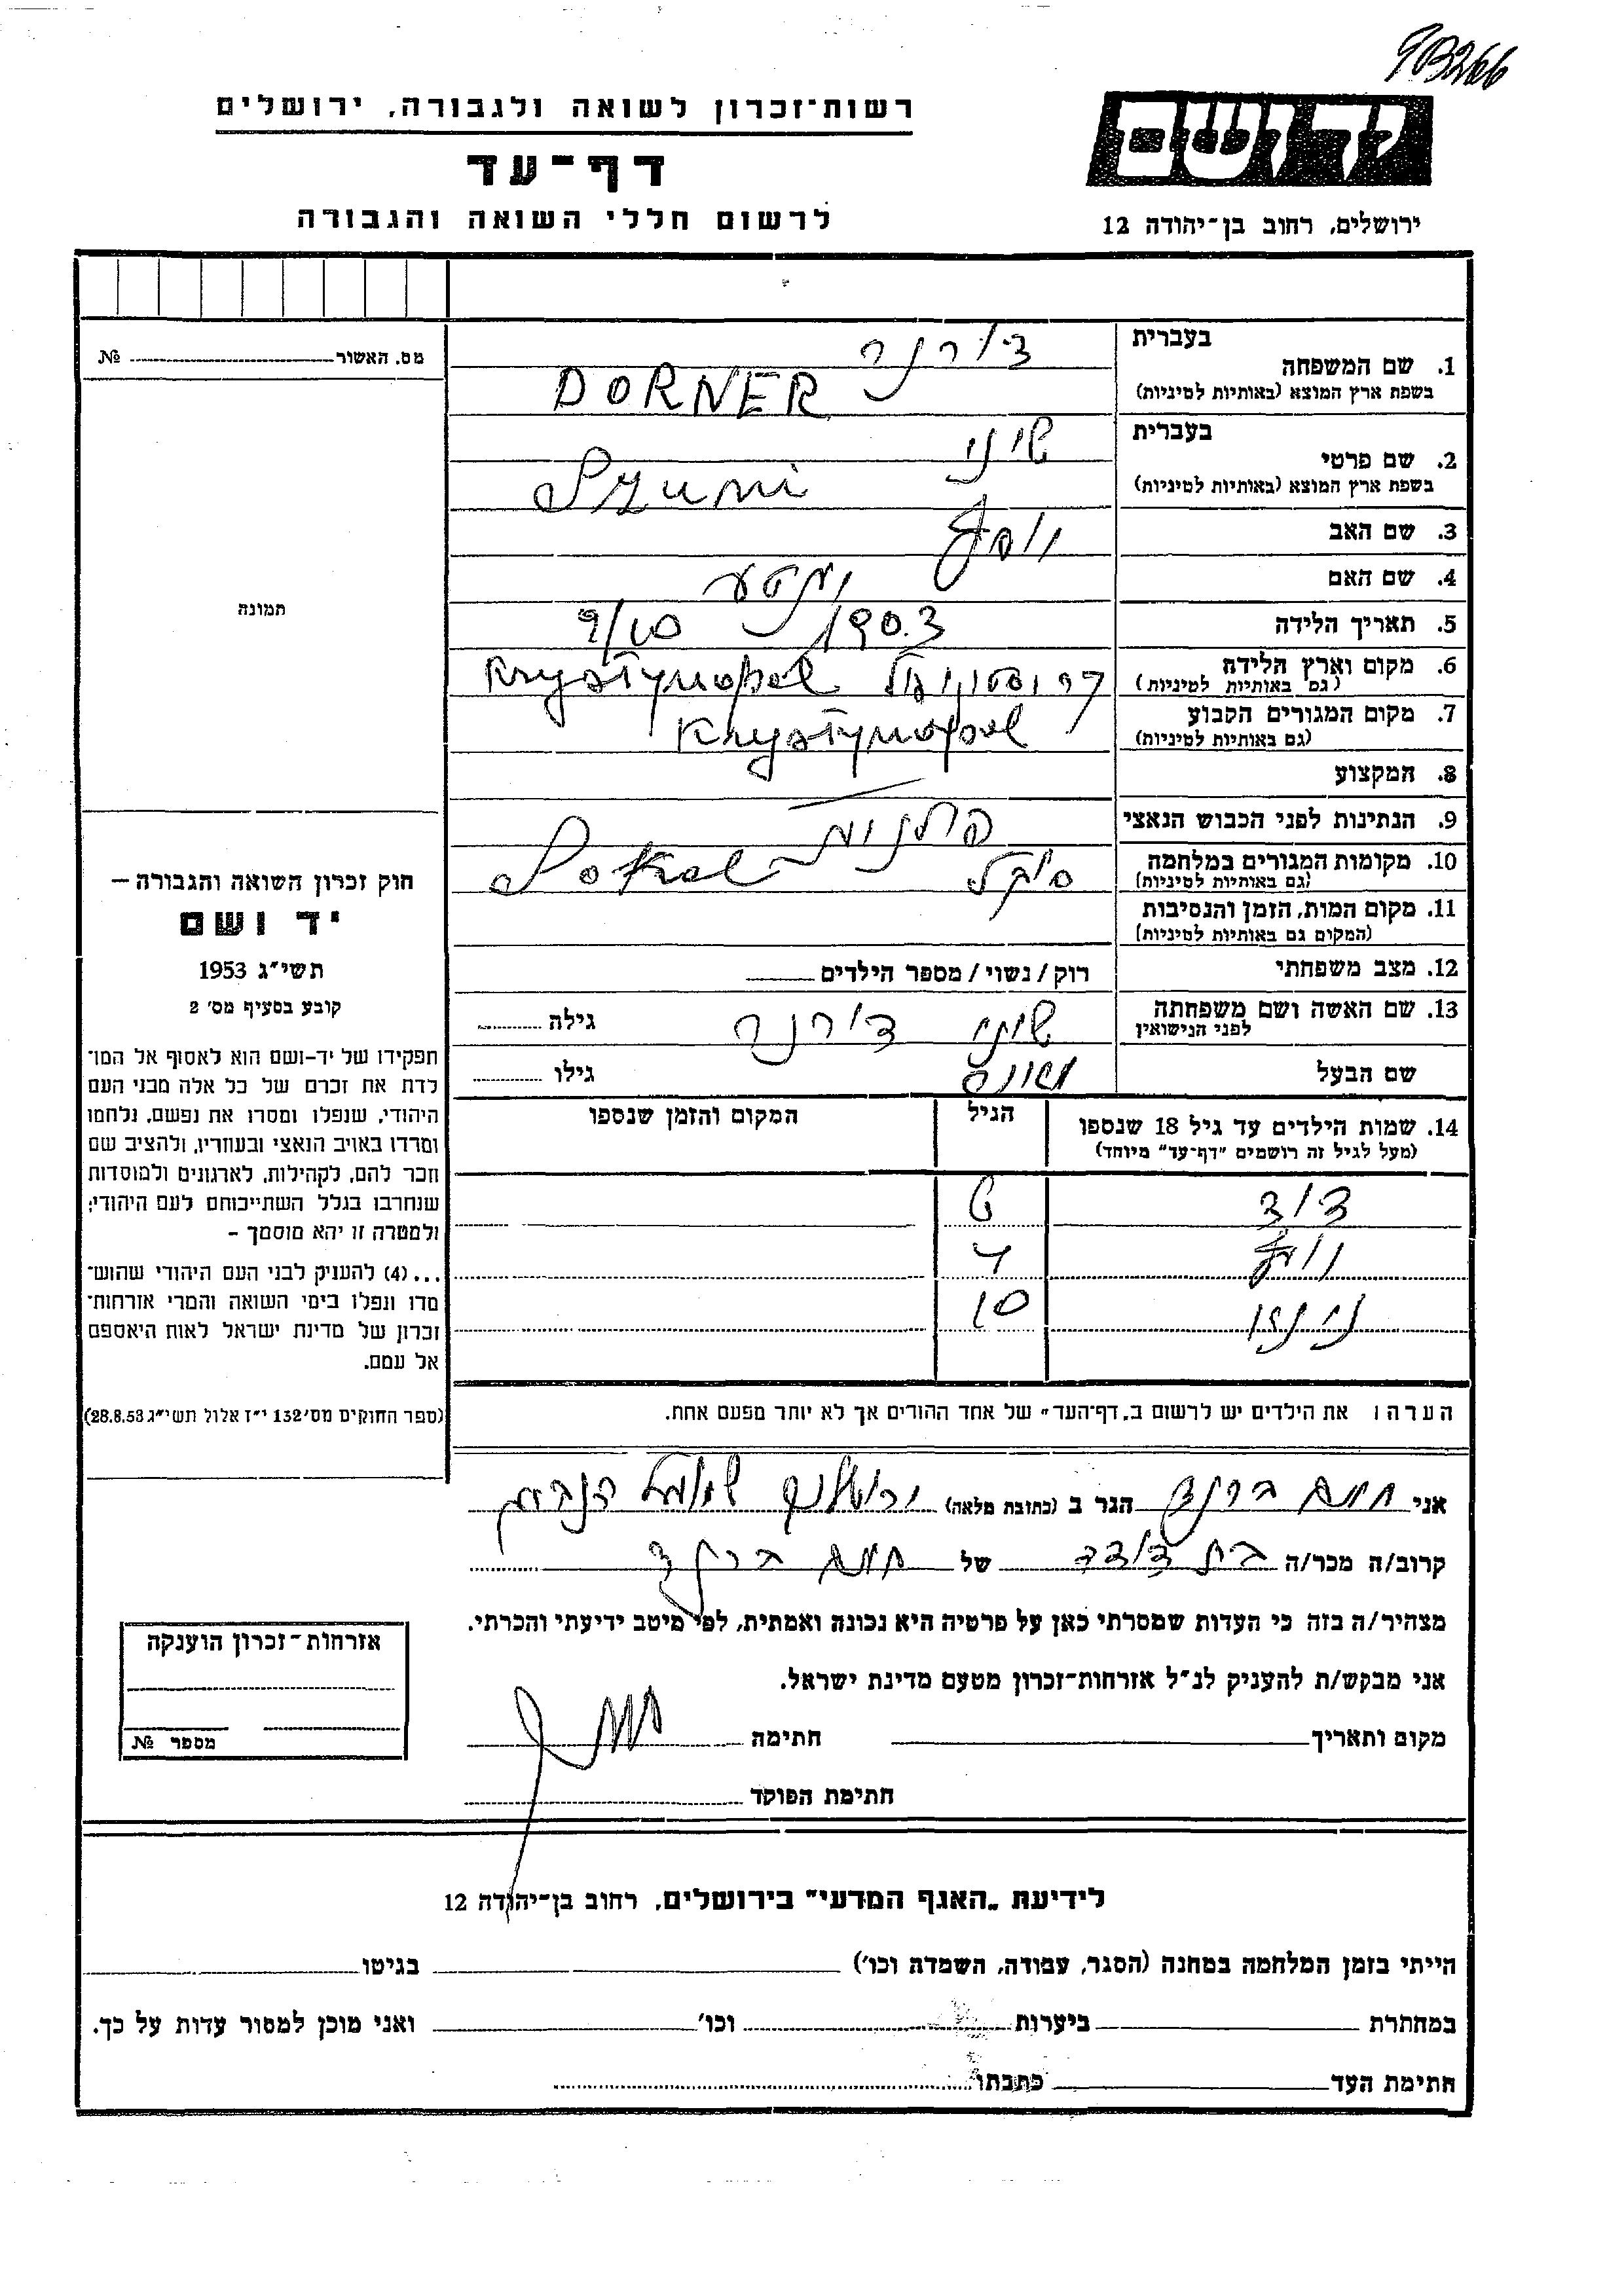 9B266
יד ושם
רשות־זכרון לשואה ולגבורה, ירושלים
דף־עד
לרשום חללי השואה והגבורה
ירושלים, רחוב בן־יהודה 12
מס. האשור № 
תמונה
1. שם המשפחה
בעברית דורנר
בשפת ארץ המוצא (באותיות לטיניות) DORNER
2. שם פרטי
בעברית שיני
בשפת ארץ המוצא (באותיות לטיניות) Szuni
3. שם האב יוסף
4. שם האם
5. תאריך הלידה 1903 9/10
6. מקום וארץ הלידה
(גם באותיות לטיניות) Krystynopol
7. מקום המגורים הקבוע
(גם באותיות לטיניות) Krystynopol
8. המקצוע —
9. הנתינות לפני הכבוש הנאצי פולנית
10. מקומות המגורים במלחמה
(גם באותיות לטיניות) סוקל Sokal
11. מקום המות, הזמן והנסיבות
(המקום גם באותיות לטיניות)
12. מצב משפחתי רוק / נשוי / מספר הילדים
13. שם האשה ושם משפחתה
לפני הנישואין דורנר גילה
שם הבעל גילו
14. שמות הילדים עד גיל 18 שנספו הגיל המקום והזמן שנספו
(מעל לגיל זה רושמים "דף־עד" מיוחד)
דוד 6
4
10
הערה: את הילדים יש לרשום ב„דף־העד" של אחד ההורים אך לא יותר מפעם אחת.
חוק זכרון השואה והגבורה —
יד ושם
תשי״ג 1953
קובע בסעיף מס׳ 2
תפקידו של יד־ושם הוא לאסוף אל המו־
לדת את זכרם של כל אלה מבני העם
היהודי, שנפלו ומסרו את נפשם, נלחמו
ומרדו באויב הנאצי ובעוזריו, ולהציב שם
וזכר להם, לקהילות, לארגונים ולמוסדות
שנחרבו בגלל השתייכותם לעם היהודי;
ולמטרה זו יהא מוסמך –
...(4) להעניק לבני העם היהודי שהוש־
מדו ונפלו בימי השואה והמרי אזרחות־
זכרון של מדינת ישראל לאות היאספם
אל עמם.
(ספר החוקים מס׳ 132 י״ז אלול תשי״ג 28.8.53)
אני חיים ברנד הגר ב (כתובת מלאה) ירושלים שמואל הנביא
קרוב/ה מכר/ה בת דודה של חיים ברנד
מצהיר/ה בזה כי העדות שמסרתי כאן על פרטיה היא נכונה ואמתית, לפי מיטב ידיעתי והכרתי.
אני מבקש/ת להעניק לנ״ל אזרחות־זכרון מטעם מדינת ישראל.
מקום ותאריך חתימה
חתימת הפוקד
אזרחות־זכרון הוענקה
מספר №
לידיעת „האגף המדעי" בירושלים, רחוב בן־יהודה 12
הייתי בזמן המלחמה במחנה (הסגר, עבודה, השמדה וכו׳) בגיטו
במחתרת ביערות וכו׳ ואני מוכן למסור עדות על כך.
חתימת העד כתבתו